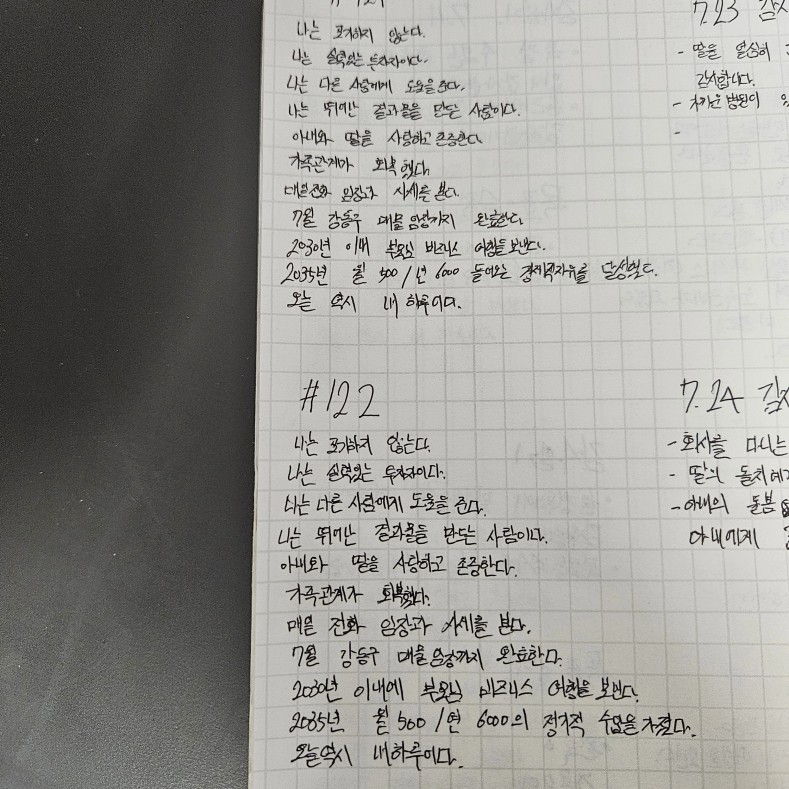 나는 포기하지 않는다.
나는 실력있는 투자자이다.
나는 다른 사람에게 도움을 준다.
나는 뛰어난 결과물을 만드는 사람이다.
아내와 딸을 사랑하고 존중한다.
가족관계가 회복했다.
매일 전화 임장과 시세를 본다.
7월 강동구 매물임장까지 완료한다.
2030년 이내 부모님 비즈니스 여행을 보낸다.
2035년 월 500/년 6000 들어오는 경제적자유를 달성했다.
오늘 역시 내 하루이다.
#122
나는 포기하지 않는다.
나는 실력있는 투자자이다.
나는 다른 사람에게 도움을 준다.
나는 뛰어난 결과물을 만드는 사람이다.
아내와 딸을 사랑하고 존중한다.
가족관계가 회복했다.
매일 전화 임장과 시세를 본다.
7월 강동구 매물임장까지 완료한다.
2030년 이내에 부모님 비즈니스 여행을 보낸다.
2035년 월 500/연 6000의 정기적 수입을 가졌다.
오늘역시 내하루이다.
7.23 감
- 딸을 열심히
감사합니다.
-
-
7.24 감
- 회사를 다니는
- 딸의
- 아내의 돌봄
아내에게